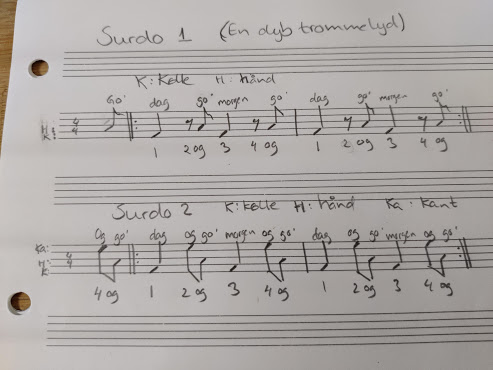 Surdo 1 (En dyb trommelyd)
K: Kelle H: hånd
Go' dag go' morgen go' dag go' morgen go'
H:
K:
4
4
1 2 og 3 4 og 1 2 og 3 4 og
Surdo 2 K: kelle H: hånd Ka: Kant
Og go' dag og go' morgen og go' dag og go' morgen og go'
Ka:
H:
K:
4
4
4 og 1 2 og 3 4 og 1 2 og 3 4 og